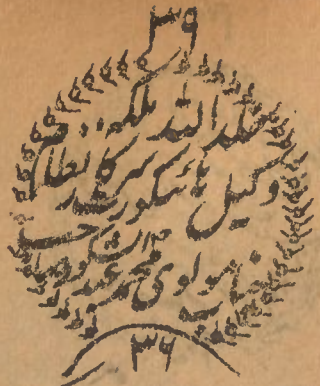 ٣٩
خلد اللہ ملکہ
وکیل ہائیکورٹ سرکار نظام
جناب مولوی محمد عبد الشکور صاحب
٣٦